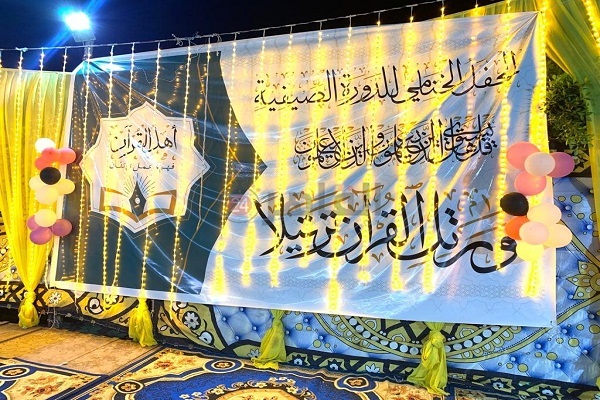 الحفل الختامي للدورة الصيفية
قل هل يستوي الذين يعلمون والذين لا يعلمون
ورتل القرآن ترتيلا
أهل القرآن